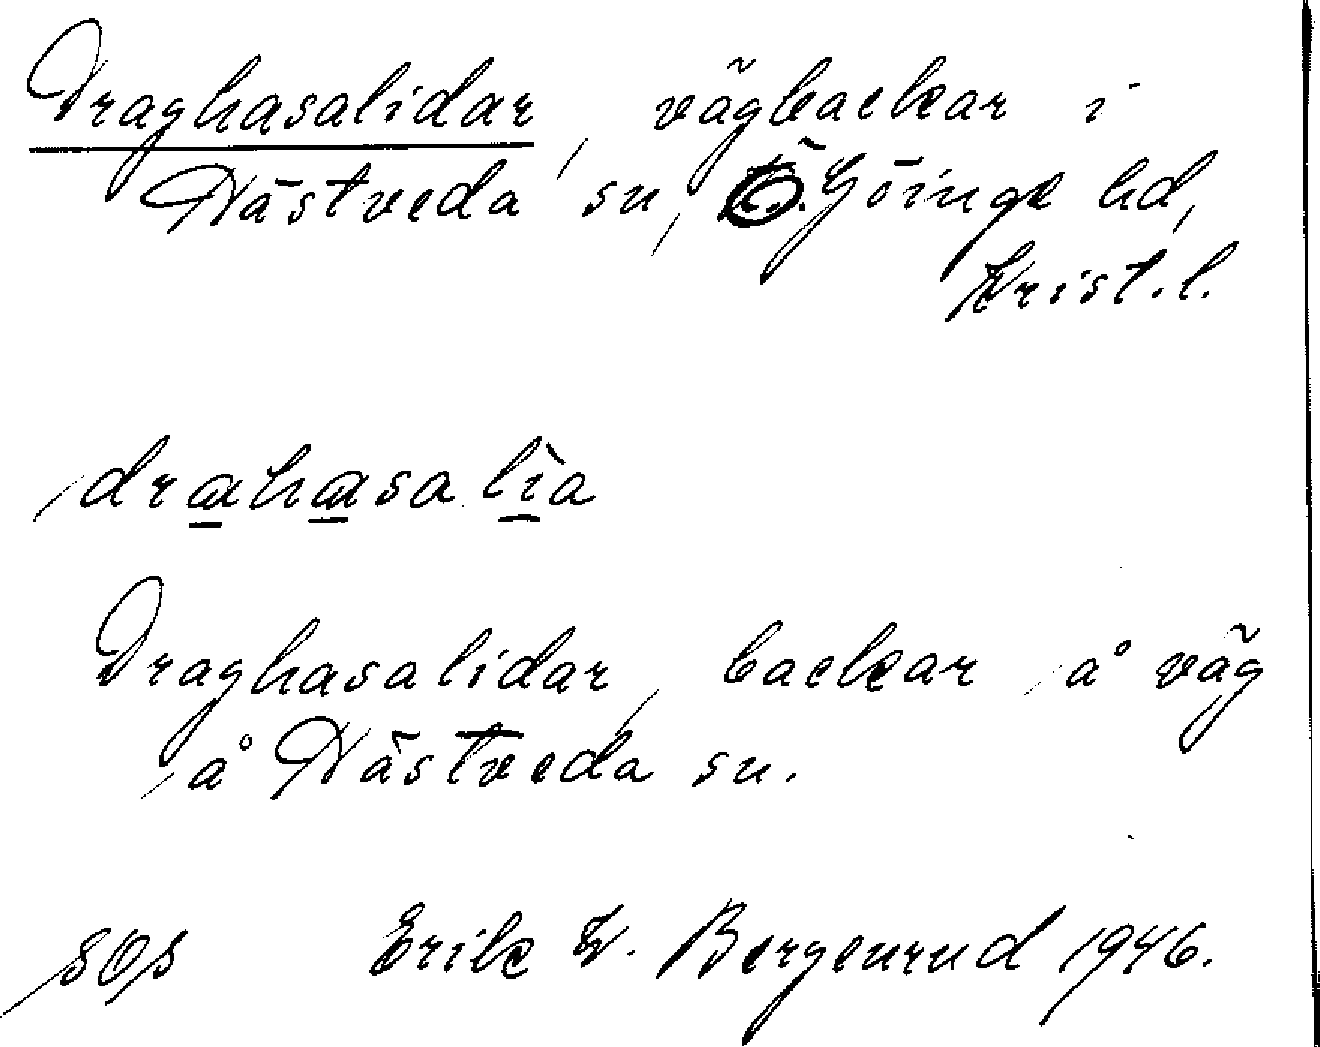 Draghasalidar, vägbackar i
Hästveda sn, Ö. Göinge hd,
Krist. l.
drahasa lìa
Draghasalidar, backar å väg
å Hästveda sn.
SOS Erik W. Bergenrud 1946.